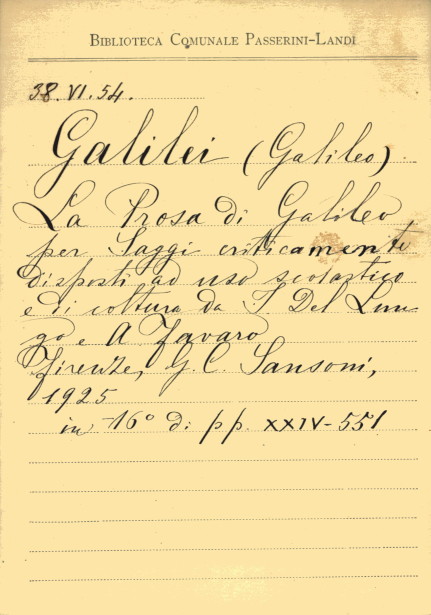 BIBLIOTECA COMUNALE PASSERINI-LANDI
38.VI.54.
Galilei (Galileo)
La Prosa di Galileo
per Saggi criticamente
disposti ad uso scolastico
e di coltura da I. Del Lun-
go e A Favaro
Firenze, G. C. Sansoni,
1925
in 16° di pp. XXIV-551